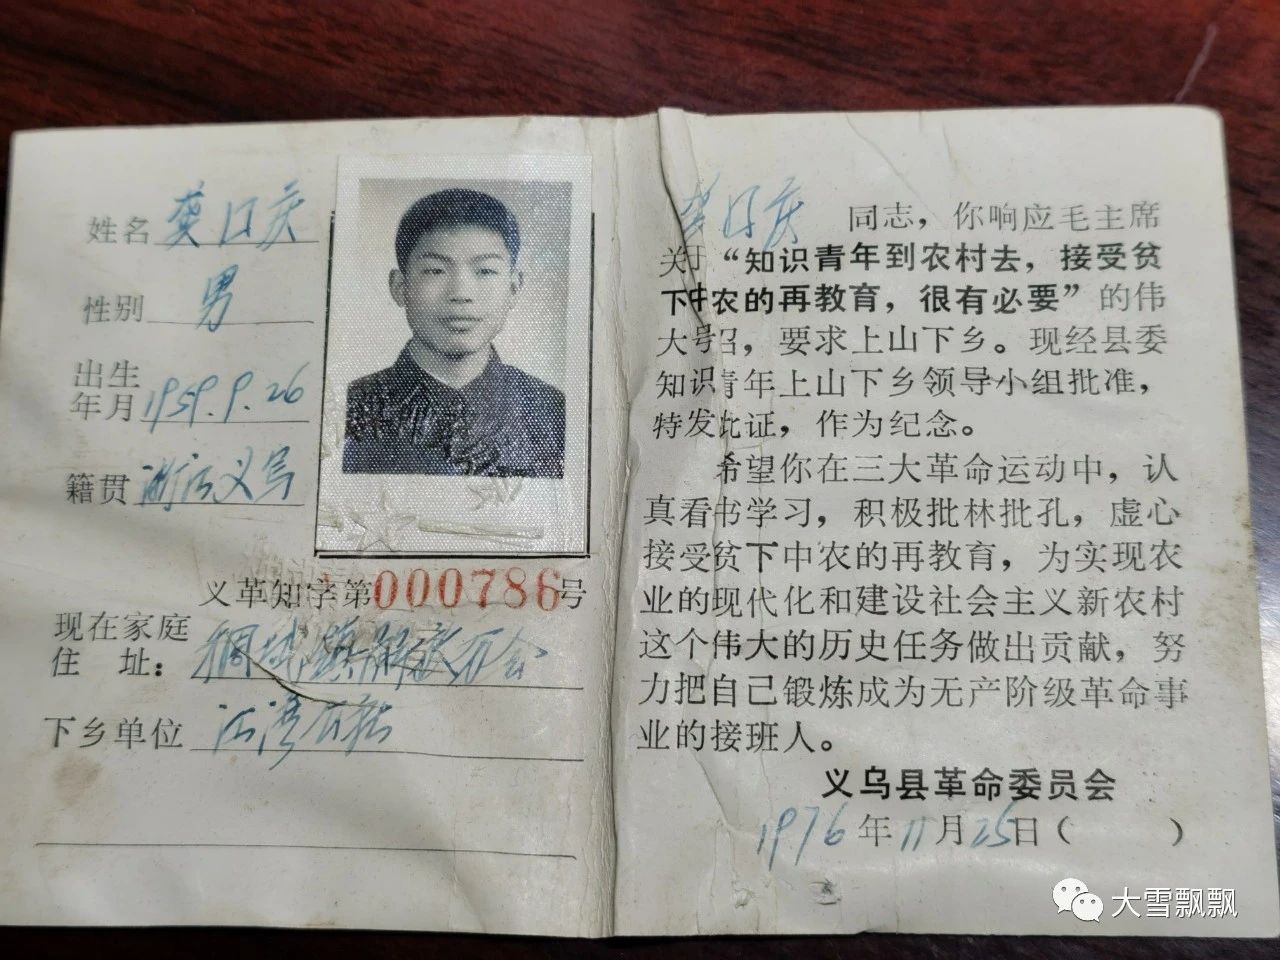 姓名 龚江庆
性别 男
出生
年月 1959.9.26
籍贯 浙江义乌
义革知字第000786号
现在家庭
住 址： 稠城镇解放百会
下乡单位 江湾公社
龚江庆 同志，你响应毛主席
关于“知识青年到农村去，接受贫
下中农的再教育，很有必要”的伟
大号召，要求上山下乡。现经县委
知识青年上山下乡领导小组批准，
特发此证，作为纪念。
希望你在三大革命运动中，认
真看书学习，积极批林批孔，虚心
接受贫下中农的再教育，为实现农
业的现代化和建设社会主义新农村
这个伟大的历史任务做出贡献，努
力把自己锻炼成为无产阶级革命事
业的接班人。
义乌县革命委员会
1976年11月25日（ ）
大雪飘飘